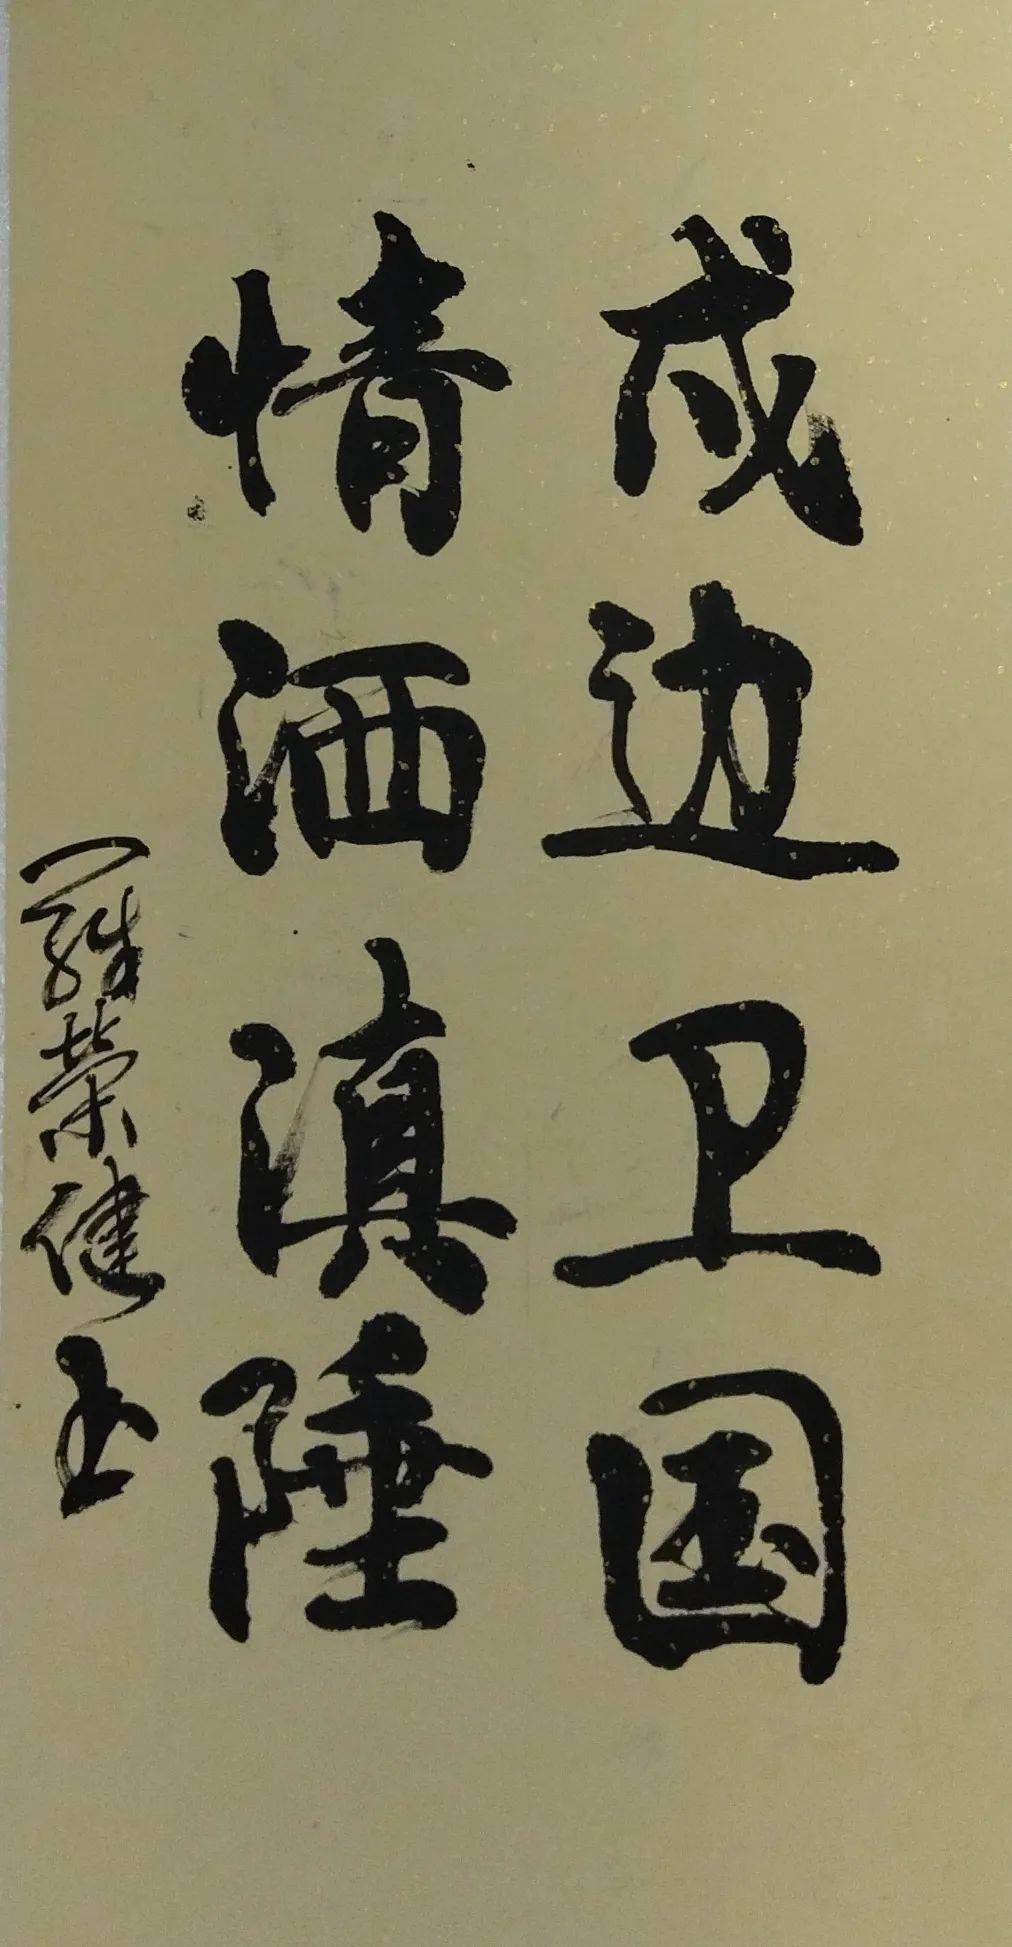 戍边卫国
情洒滇陲
羅荣健书